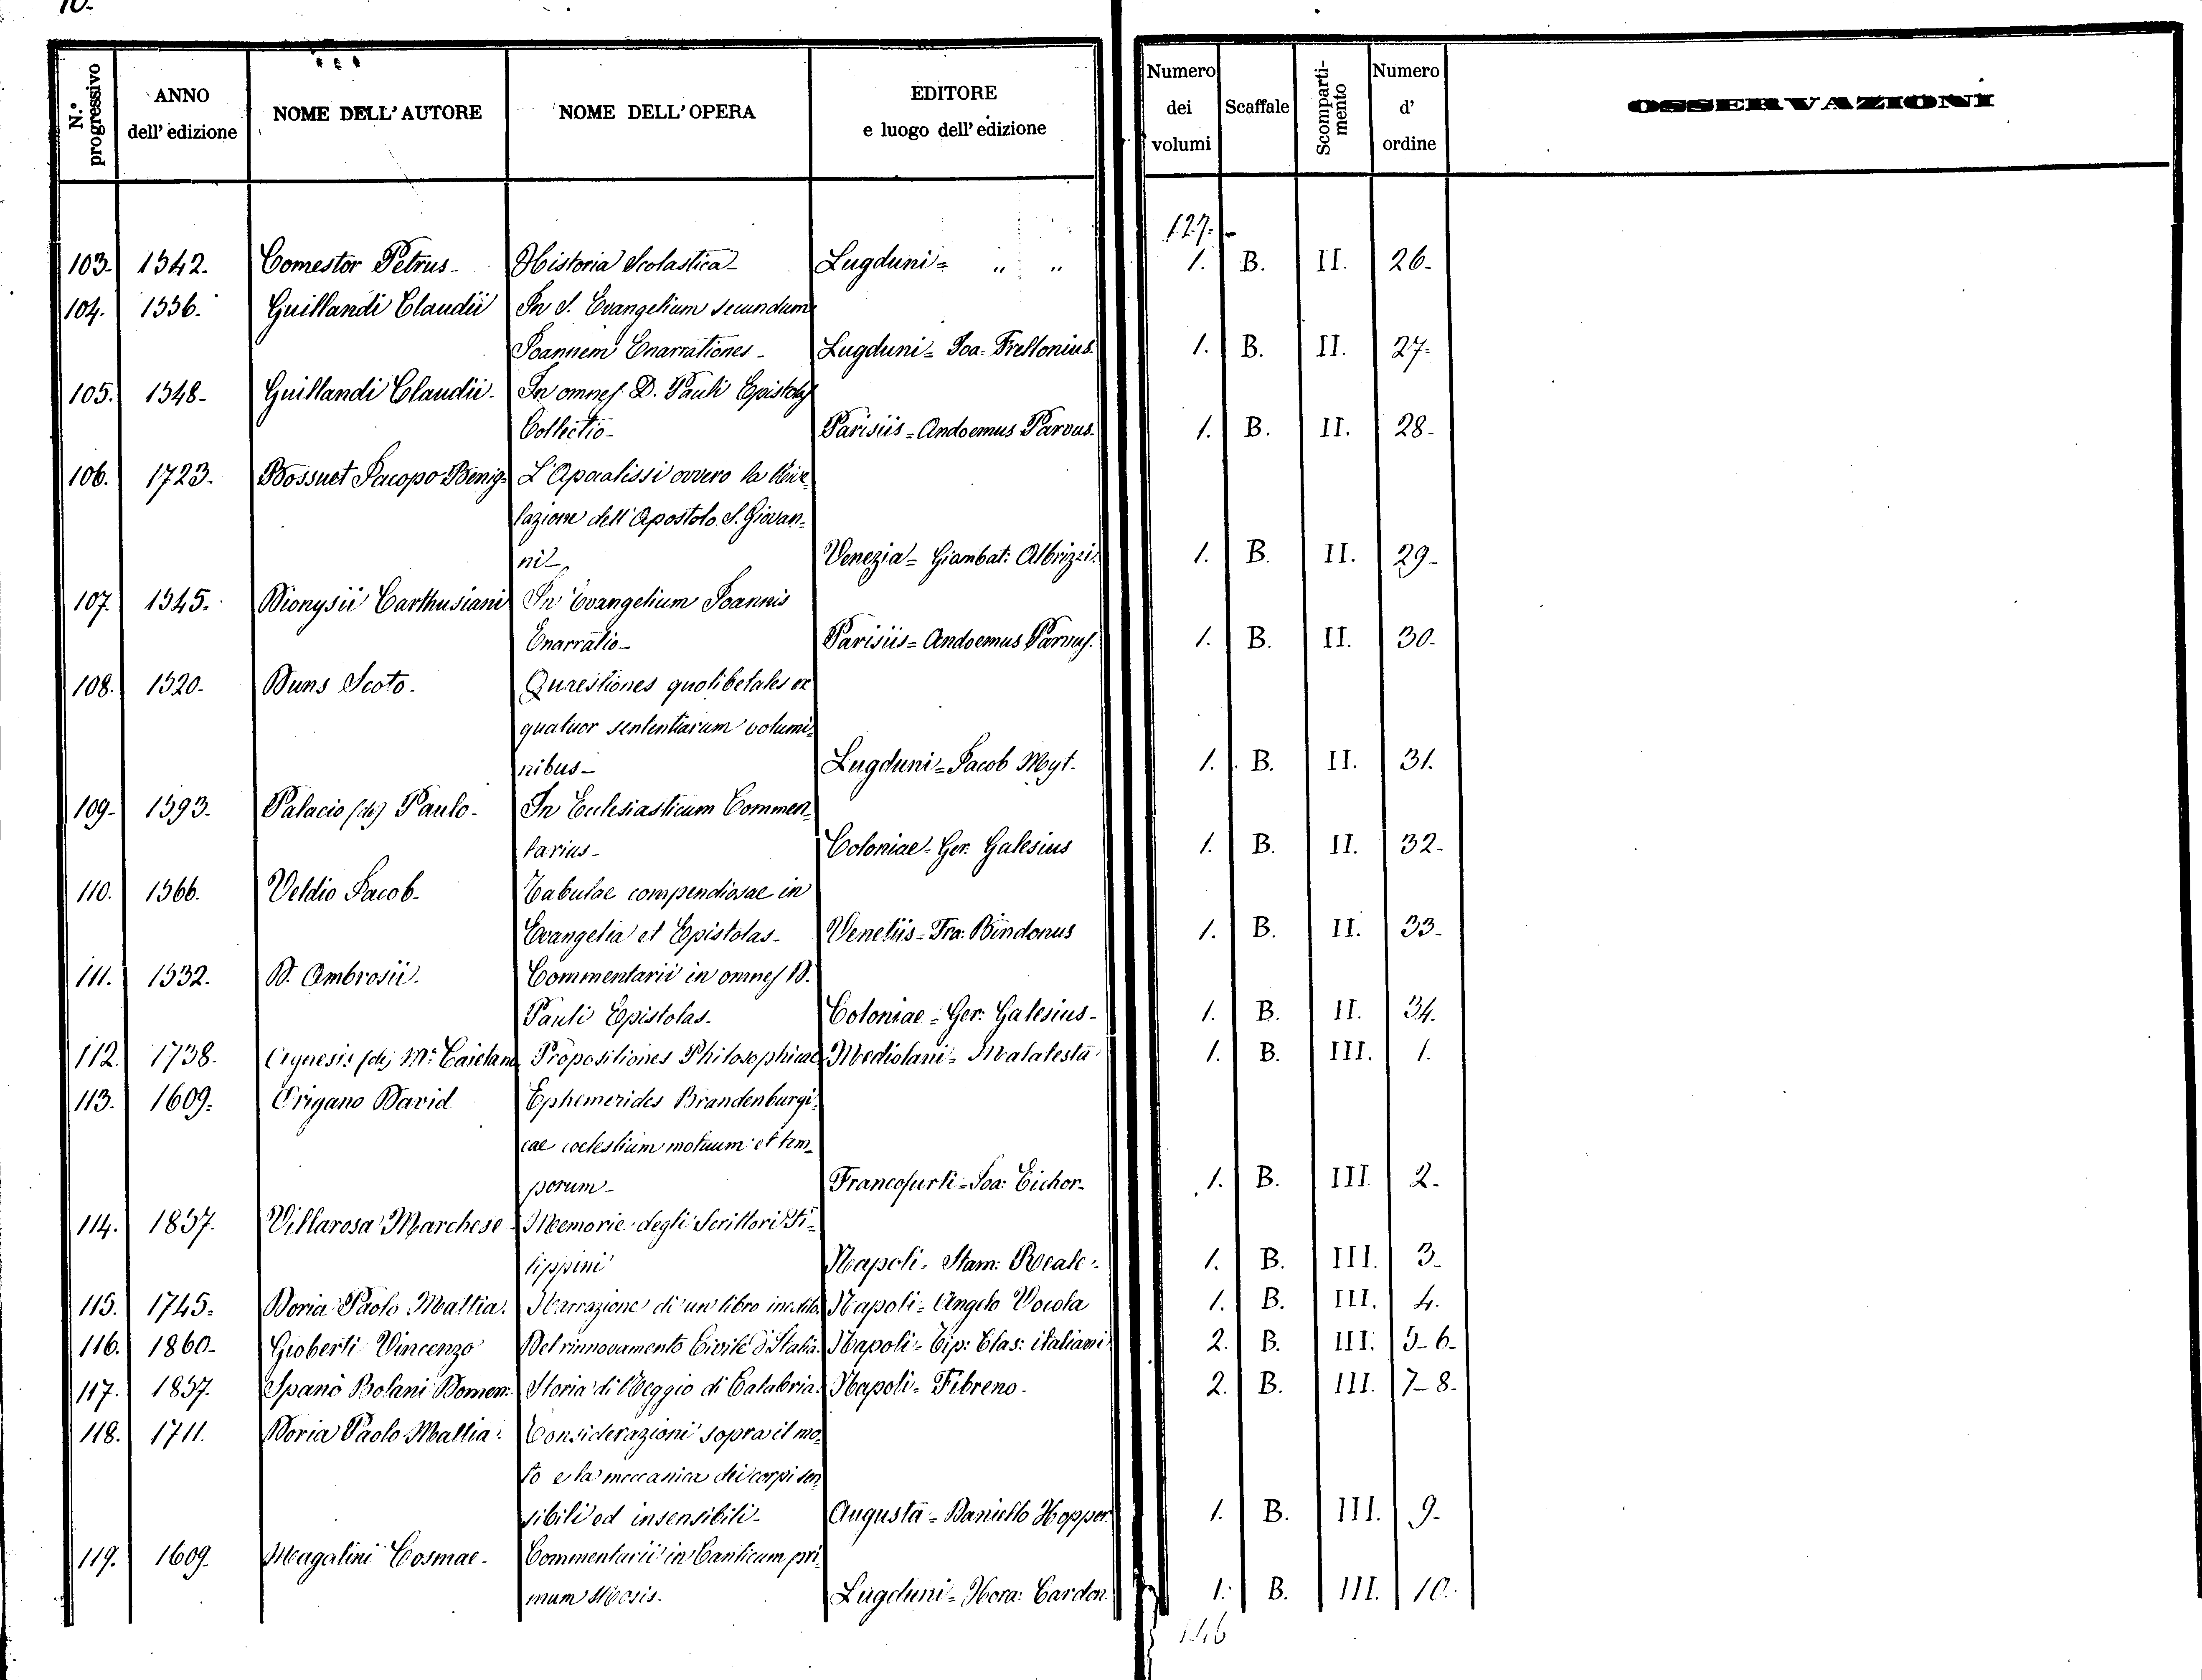 10.
N.° progressivo ANNO dell' edizione NOME DELL' AUTORE NOME DELL' OPERA EDITORE e luogo dell' edizione Numero dei volumi Scaffale Scomparti-mento Numero d' ordine OSSERVAZIONI
127.
103. 1542. Comestor Petrus- Historia Scolastica- Lugduni= " " 1. B. II. 26-
104. 1536. Guillandi Claudii In S. Evangelium secundum
Joannem Enarrationes- Lugduni= Joa: Frellonius. 1. B. II. 27-
105. 1548- Guillandi Claudii- In omnes D. Pauli Epistolas
Collectio- Parisiis=Andoemus Parvus. 1. B. II. 28-
106. 1723. Bossuet Jacopo Benig: L'Apocalissi ovvero la Rive-
lazione dell'Apostolo S. Giovan-
ni- Venezia= Giambat: Albrizzi. 1. B. II. 29-
107. 1545. Dionysii Carthusiani In Evangelium Joannis
Enarratio- Parisiis=Andoemus Parvus. 1. B. II. 30-
108. 1520- Duns Scoto- Quaestiones quolibetales ex
quatuor sententiarum volumi-
nibus- Lugduni=Jacob Myt. 1. B. II. 31.
109- 1593. Palacio (de) Paulo- In Ecclesiasticum Commen-
tarius- Coloniae=Ger: Galesius 1. B. II. 32-
110. 1566. Veldio Jacob- Tabulae compendiosae in
Evangelia et Epistolas- Venetiis=Fra: Bindonus 1. B. II. 33-
111. 1532. D. Ambrosii. Commentarii in omnes D.
Pauli Epistolas- Coloniae=Ger: Galesius- 1. B. II. 34.
112. 1738. (de) M: Caietana Propositiones Philosophicae Mediolani= Malatesta 1. B. III. 1.
113. 1609. Origano David Ephemerides Brandenburgi-
cae coelestium motuum et tem-
porum- Francofurti=Joa: Eichor- 1. B. III. 2.
114. 1837. Villarosa Marchese- Memorie degli Scrittori Fi-
lippini Napoli= Stam: Reale- 1. B. III. 3-
115. 1745. Doria Paolo Mattia. Narrazione di un libro inedito. Napoli= Angelo Vocola 1. B. III. 4.
116. 1860- Gioberti Vincenzo Del rinnovamento Civile d'Italia. Napoli= Tip: Clas: italiani 2. B. III. 5-6-
117. 1857. Spanò Bolani Domen: Storia di Reggio di Calabria. Napoli= Fibreno. 2. B. III. 7-8-
118. 1711. Doria Paolo Mattia. Considerazioni sopra il mo-
to e la meccanica dei corpi sen-
sibili ed insensibili- Augusta=Daniello Hopper. 1. B. III. 9-
119. 1609. Magalini Cosmae- Commentarii in Canticum pri-
mum Mosis. Lugduni=Hora: Cardon. 1. B. III. 10.
146